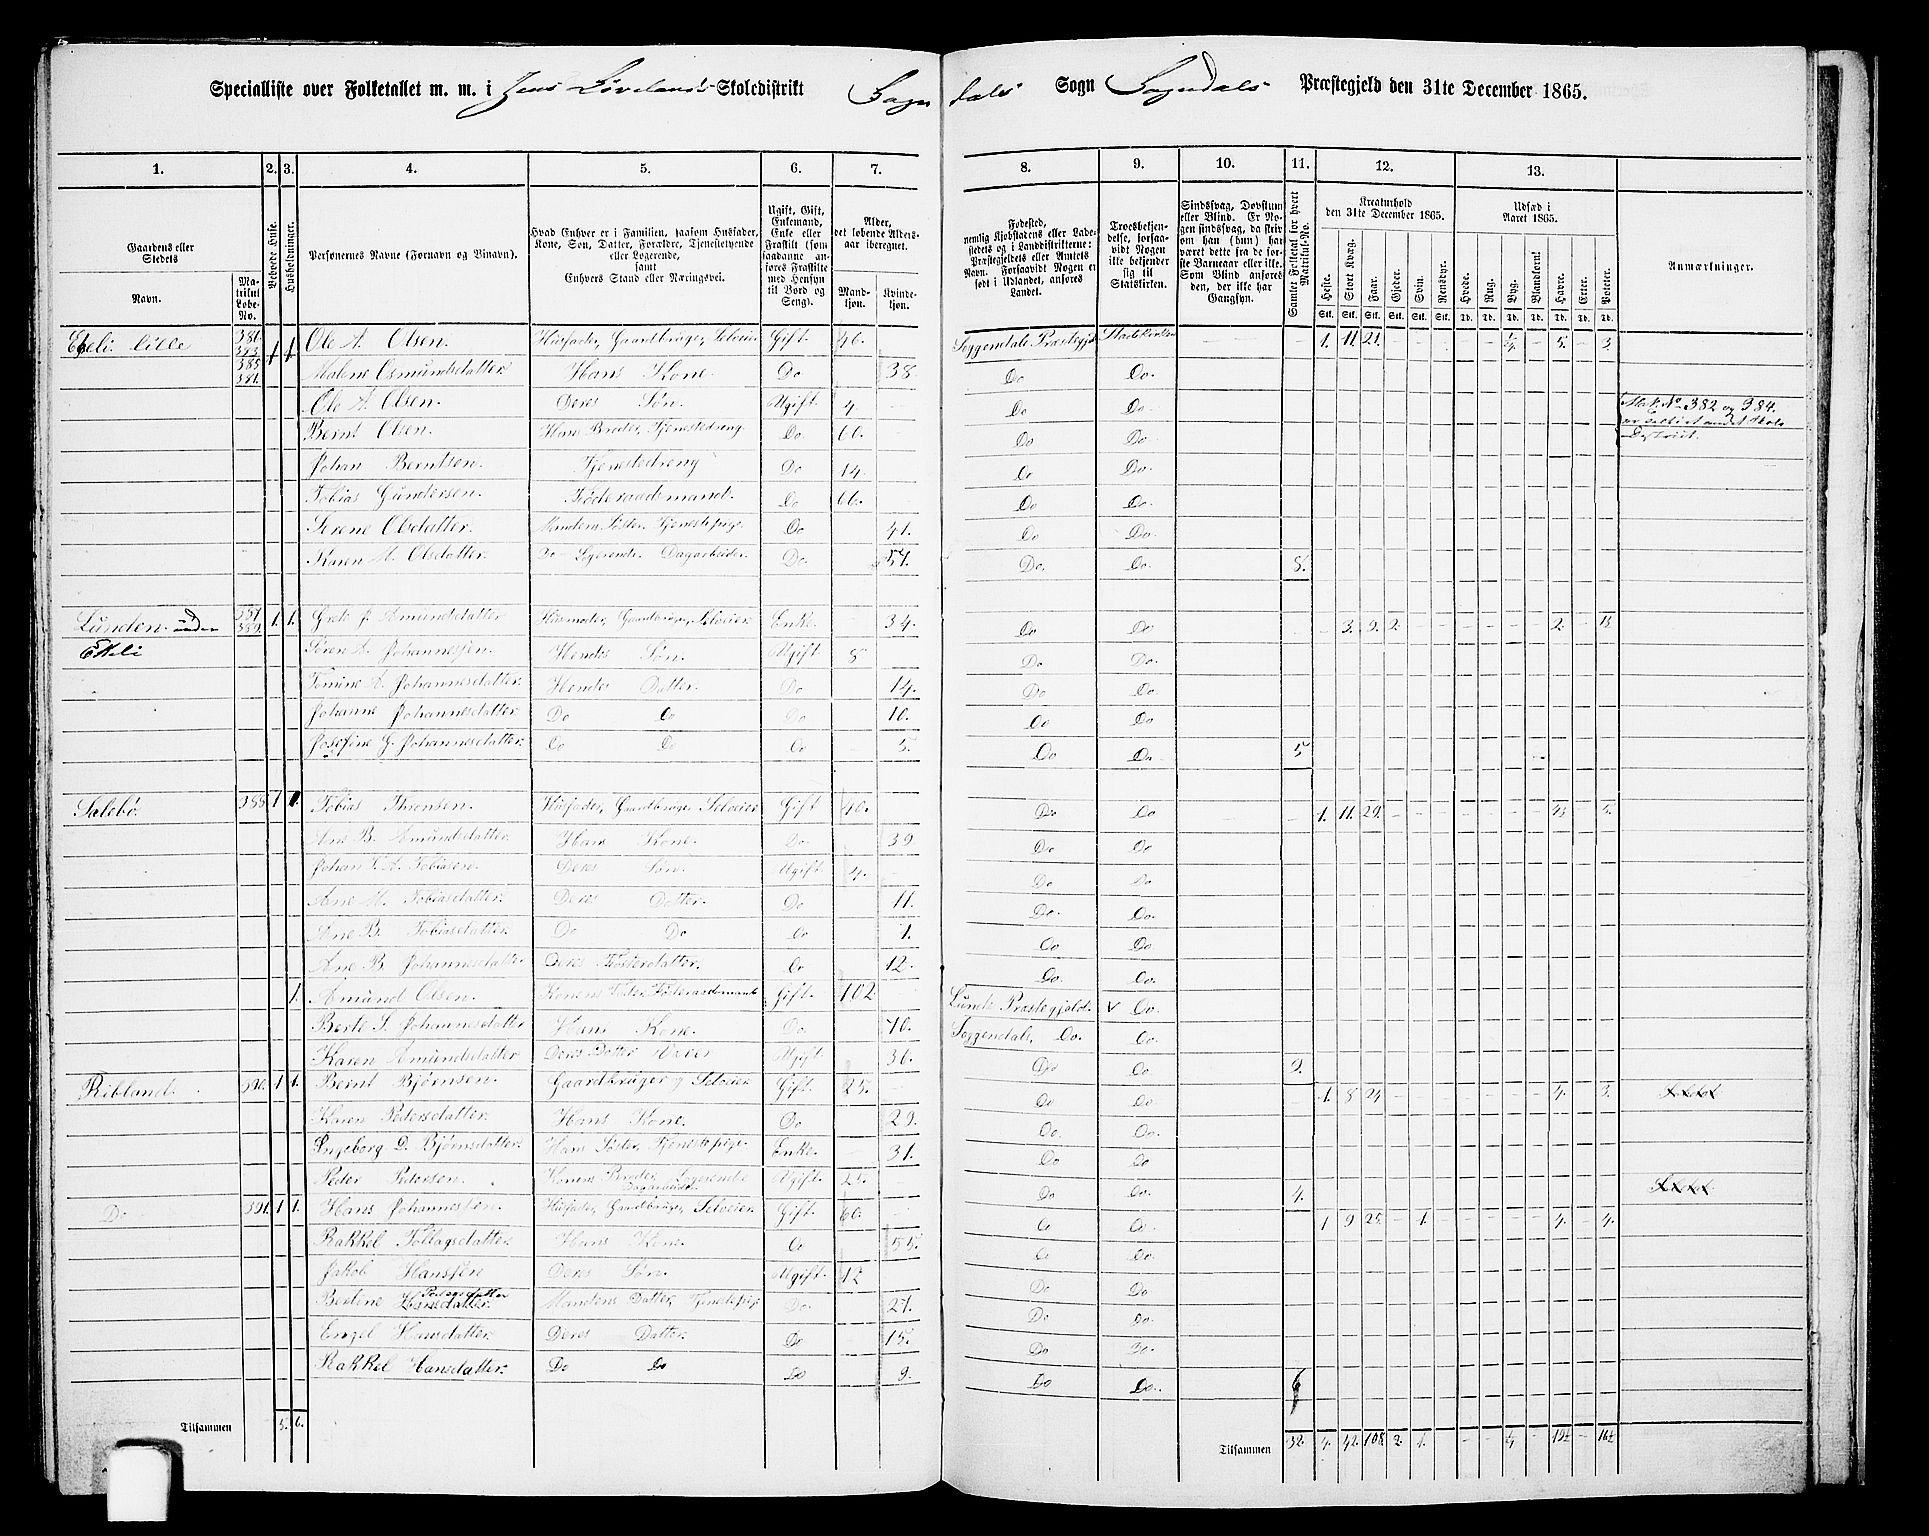 Specialliste over Folketallet m. m. i Jens Løvelands Skoledistrikt Sogndals Sogn Sogndals Præstegjeld den 31te December 1865.
1. 2. 3. 4. 5. 6. 7. 8. 9. 10. 11. 12. 13.
Gaardens eller Stedets
Navn.
Matrikul Løbe-No.
Bebyede Huse.
Husholdninger.
Personernes Navne (Fornavn og Binavn).
Hvad Enhver er i Familien, saasom Husfader, Kone, Søn, Datter, Forældre, Tjenestetyende eller Logerende, samt Enhvers Stand eller Næringsvei.
Ugift, Gift, Enkemand, Enke eller Fraskilt (som saadanne anføres Fraskilte med Hensyn til Bord og Seng).
Alder, det løbende Aldersaar iberegnet.
Mandkjøn. Kvindekjøn.
Fødested, nemlig Kjøbstadens eller Ladestedets og i Landdistrikterne: Præstegjeldets eller Amtets Navn. Forsaavidt Nogen er født i Udlandet, anføres Landet.
Troesbekjendelse, forsaavidt Nogen ikke bekjender sig til Statskirken.
Sindssvag, Døvstum eller Blind. Er Nogen sindssvag, da skriv om han (hun) har været dette fra de første Barneaar eller ikke. Som Blind anføres den, der ikke har Gangsyn.
Samlet Folketal for hvert Matrikul-No.
Kreaturhold den 31te December 1865.
Heste. Stort Kvæg. Faar. Gjeder. Svin. Rensdyr.
Udsæd i Aaret 1865.
Hvede. Rug. Byg. Blandkorn. Havre. Erter. Poteter.
Anmærkninger.
Eheli lille 1 1 Ole A. Olsen Husfader, Gaardbruger, Selveier Gift 46. Soggendals Præstegjd Statskirken 1. 11. 21. 1/4 5. 3.
385 381 Malene Osmundsdatter Hans Kone Do 38 Do Do.
Ole A. Olsen. Deres Søn Ugift 4. Do Do. Mt. No 382 og 384.
Bernt Olsen. Hans Broder, Tjenestedreng Do 60. Do Do.
Johan Berntsen. Tjenestedreng Do 14. Do Do.
Tobias Gundersen. Føderaadsmand. Do 66. Do Do.
Serene Olsdatter. Mandens Søster, Tjenestepige Do 41. Do Do.
Karen M. Olsdatter. Do Logerende Dagarbeider Do. 57. Do. Do. 8.
Lunden under 389. 1. 1. Grete J. Amundsdatter Husmoder, Gaardbruger, Selveier Enke. 34. Do Do 3. 9. 2. 2.
Eheli Søren A. Johannessen. Hendes Søn. Ugift 8 Do Do.
Tomine A. Johannesdatter. Hendes Datter. Do 14. Do Do
Johanne Johannesdatter Do Do Do 10. Do Do
Josefine G. Johannesdatter. Do Do Do 3. Do Do. 5
Salebø. 388 1 1. Tobias Gift 40. Do Do 1. 11. 29. 5.
Husfader, Gaardbruger Selveier
Ane B. Amundsdatter. Hans Kone. Do. 39 Do Do
Johan A. Tobiasen. Deres Søn. Ugift 4. Do Do
Ane M. Tobiasdatter. Deres Datter. Do 11. Do. Do.
Ane B. Tobiasdatter. Do Do Do 1. Do Do
Ane B. Johannesdatter Deres Fosterdatter. Do 12. Do Do.
1. Amund Olsen. Konens Fader, Føderaadsmand Gift. 102 Lunds Præstegjeld. v Do.
Berte S. Johannesdatter Hans Kone. Do. 70. Soggendals, Do. Do.
Karen Amundsdatter Deres Datter Ugift 36. Do Do 9.
Ribland. 390. 1 1. Bernt Bjørnsen. Gaardbruger, Selveier Gift 25. Do Do. 1. 8 24 4. 3.
Karen Pedersdatter. Hans Kone. Do 29. Do. Do.
Ingeborg D. Bjørnsdatter. Hans Søster, Tjenestepige Enke. 31. Do Do
Peder Pedersen. Konens Broder, Logerende Dagarbeider. Ugift. Do Do. 4.
Do 391. 1 1. Hans Johannessen. Husfader, Gaardbruger, Selveier Gift. 60. Do Do 1 9 25. 1. 4. 4.
Rakkel Tollagsdatter Hans Kone. Do 55. Do Do.
Jakob Hanssøn Deres Søn. Ugift. 12 Do Do
Berlene Hansdatter. Mandens Datter, Tjenestepige Do. 27. Do Do.
Engel Hansdatter Deres Datter. Do 15. Do Do.
Rakkel Hansdatter. Do Do Do 9. Do Do. 6
Tilsammen 5. 6. Tilsammen 32. 4. 42. 108. 2. 1. 1/4